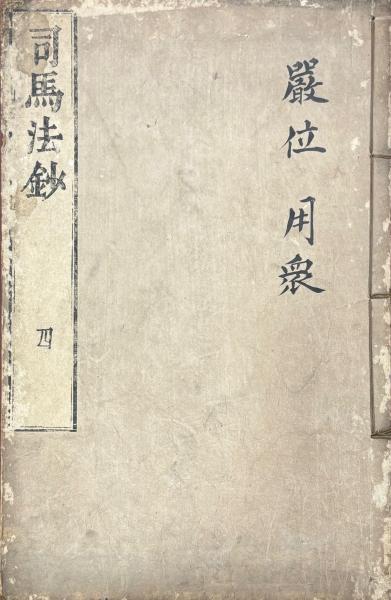 嚴位 用衆
司馬法鈔 四